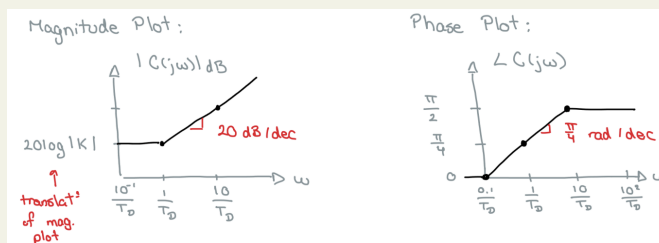 Magnitude Plot:
|C(jω)| dB
20log|K|
20 dB/dec
ω
10⁻¹/T_D
1/T_D
10/T_D
↑
translatⁿ
of mag.
plot
Phase Plot:
∠C(jω)
π/2
π/4
0
π/4 rad/dec
0.1/T_D
1/T_D
10/T_D
10²/T_D
ω